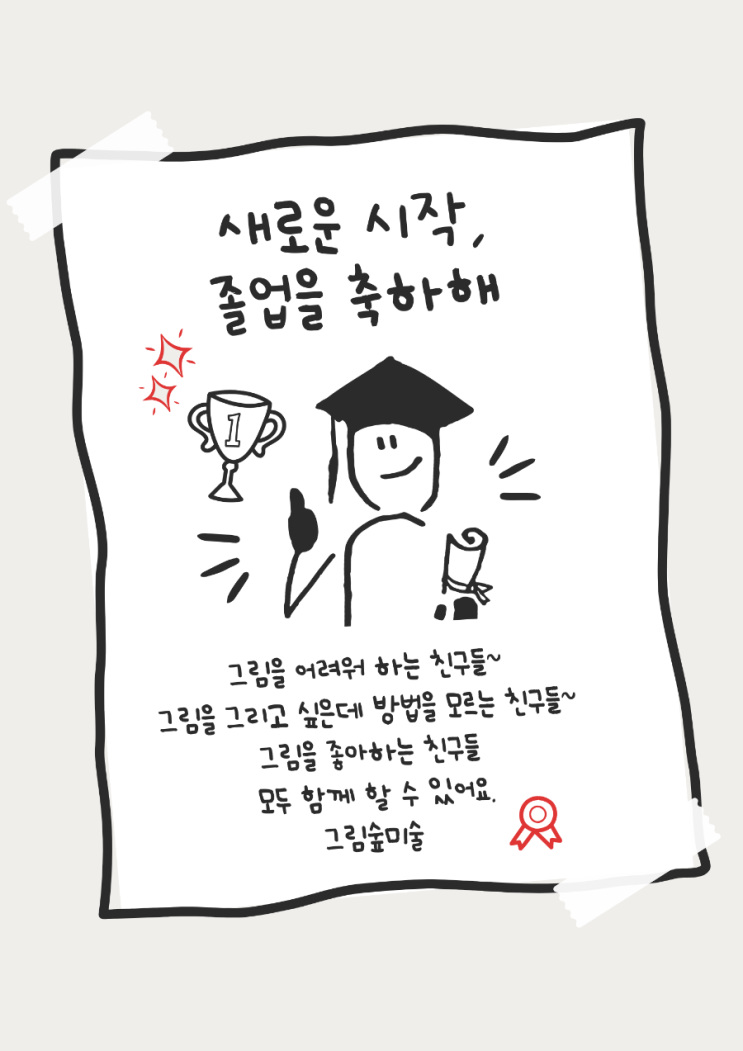 새로운 시작,
졸업을 축하해
1
그림을 어려워 하는 친구들~
그림을 그리고 싶은데 방법을 모르는 친구들~
그림을 좋아하는 친구들
모두 함께 할 수 있어요.
그림숲미술